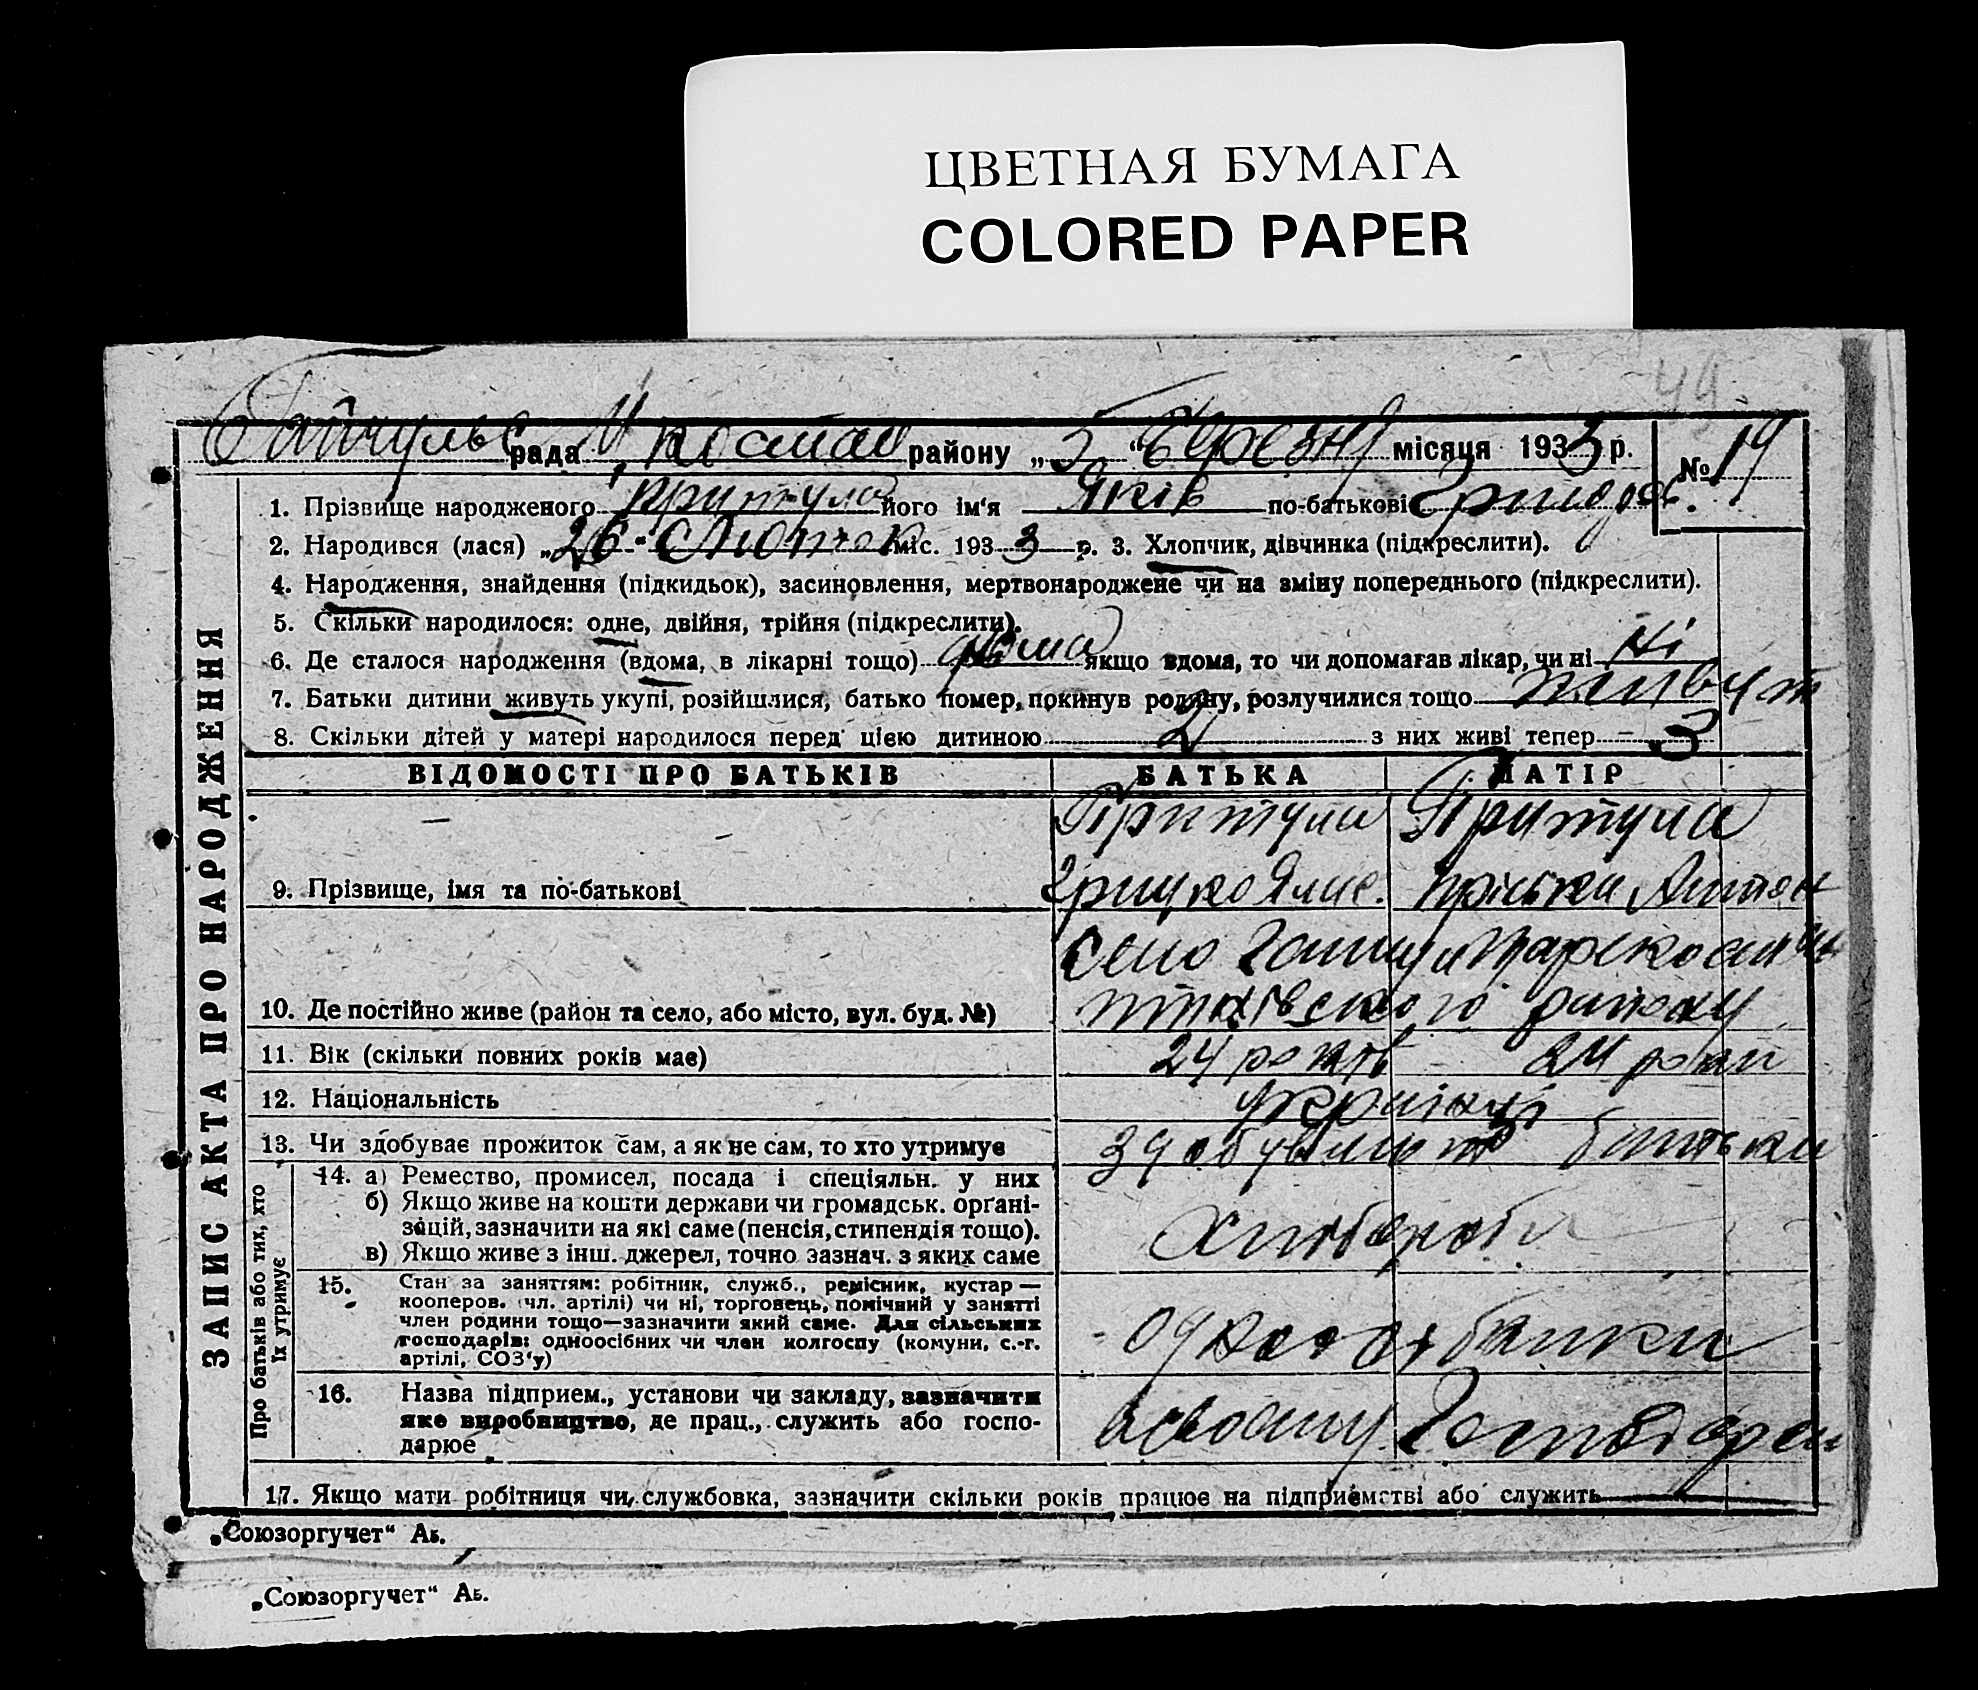 ЦВЕТНАЯ БУМАГА
COLORED PAPER
44
рада районy „5“ Березня місяця 1933 р. № 19
1. Прізвище народженого Притула його ім'я Яків по-батькові
2. Народився (лася) „26“ Лютого міс. 1933 р. 3. Хлопчик, дівчинка (підкреслити).
4. Народження, знайдення (підкидьок), засиновлення, мертвонароджене чи на зміну попереднього (підкреслити).
5. Скільки народилося: одне, двійня, трійня (підкреслити).
6. Де сталося народження (вдома, в лікарні тощо) дома якщо вдома, то чи допомагав лікар, чи ні ні
7. Батьки дитини живуть укупі, розійшлися, батько помер, покинув родину, розлучилися тощо живут
8. Скільки дітей у матері народилося перед цією дитиною 2 з них живі тепер 3
ЗАПИС АКТА ПРО НАРОДЖЕННЯ
ВІДОМОСТІ ПРО БАТЬКІВ БАТЬКА МАТІР
Притула Притула
9. Прізвище, імя та по-батькові Грицко
село
10. Де постійно живе (район та село, або місто, вул. буд. №) району
11. Вік (скільки повних років має) 24 років 24 роки
12. Національність українці
13. Чи здобуває прожиток сам, а як не сам, то хто утримує здобувають батьки
Про батьків або тих, хто їх утримує
14. а) Ремество, промисел, посада і спеціяльн. у них
б) Якщо живе на кошти держави чи громадськ. органі-
зацій, зазначити на які саме (пенсія, стипендія тощо). хлібороби
в) Якщо живе з інш. джерел, точно зазнач. з яких саме
15. Стан за заняттям: робітник, служб., ремісник, кустар —
кооперов. (чл. артілі) чи ні, торговець, помічний у занятті
член родини тощо—зазначити який саме. Для сільських
господарів: одноосібних чи член колгоспу (комуни, с.-г.
артілі, СОЗ'у)
16. Назва підприєм., установи чи закладу, зазначити
яке виробництво, де прац., служить або госпо-
дарює в своему
17. Якщо мати робітниця чи службовка, зазначити скільки років працює на підприємстві або служить
„Союзоргучет“ Аь.
„Союзоргучет“ Аь.